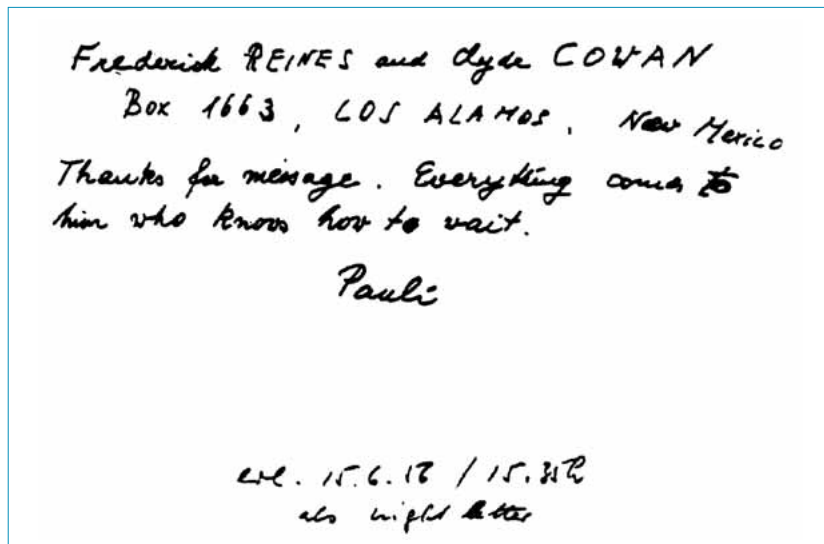 Frederick REINES and Clyde COWAN
Box 1663, LOS ALAMOS, New Mexico
Thanks for message. Everything comes to
him who knows how to wait.
Pauli
erl. 15.6.56 / 15.35h
als night letter